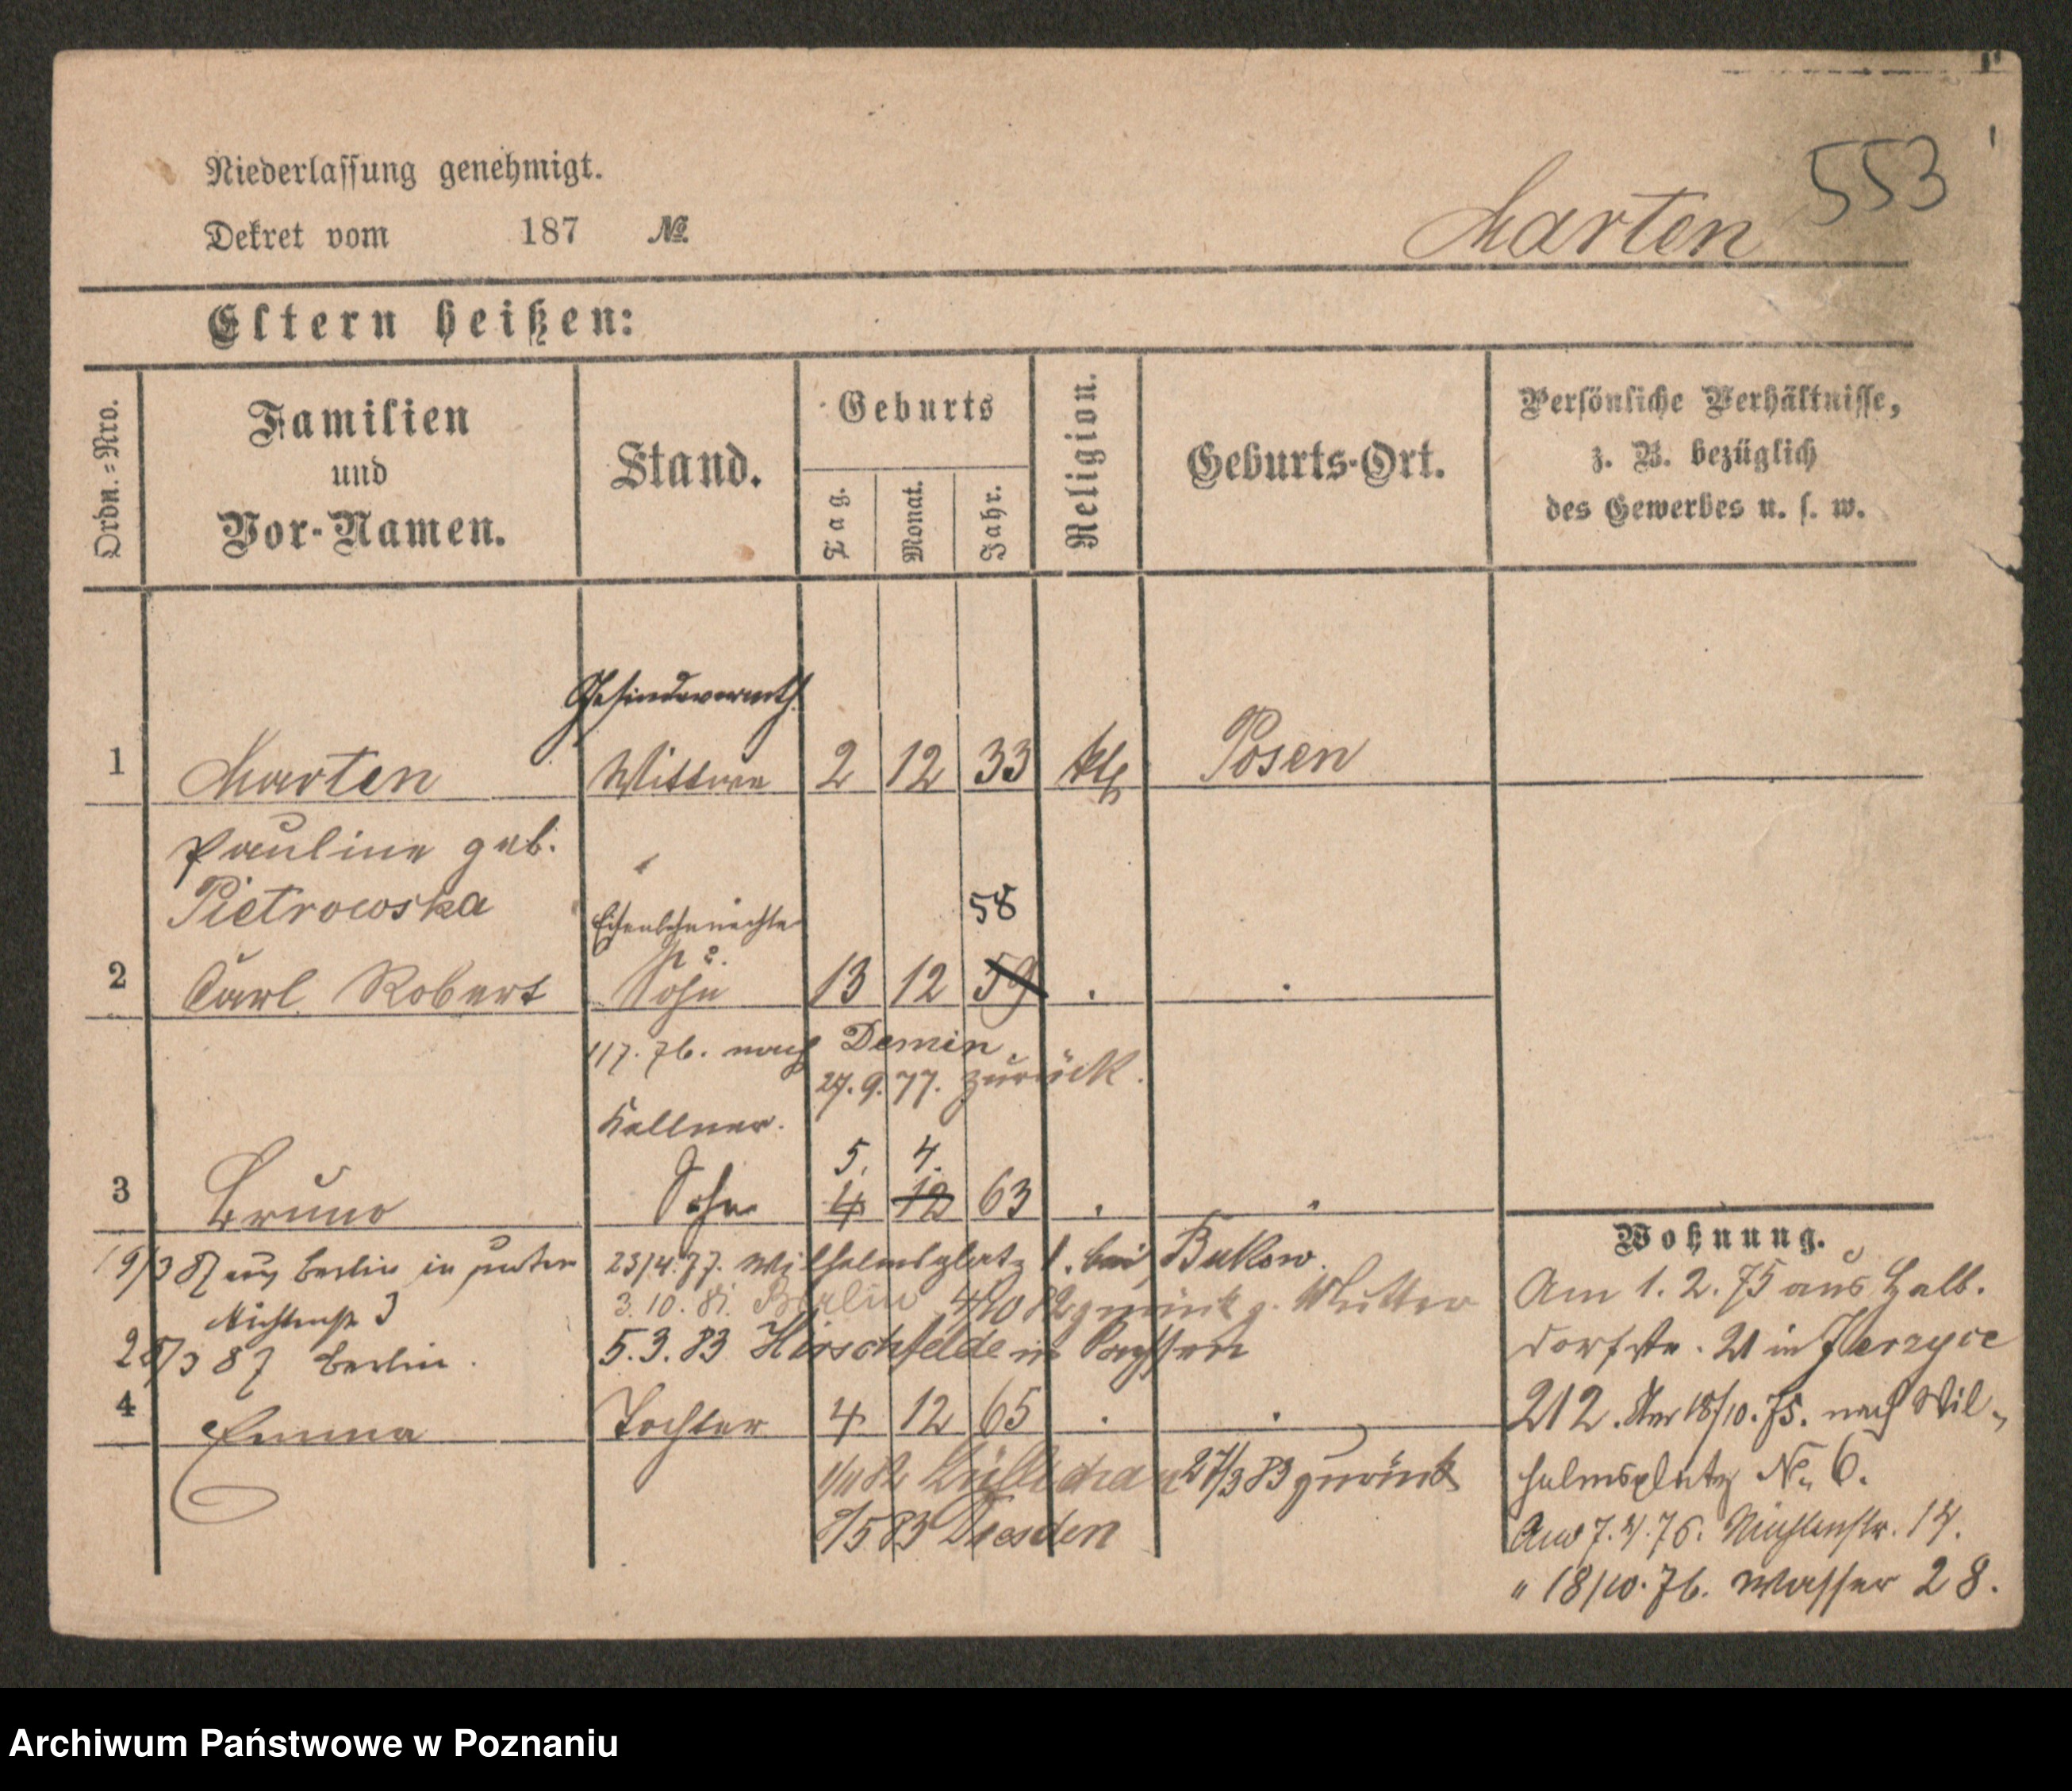 553
Niederlassung genehmigt.
Dekret vom 187 №
Marten
Eltern heißen:
Ordn.=Nro.
Familien
und
Vor-Namen.
Stand.
Geburts
Tag.
Monat.
Jahr.
Religion.
Geburts-Ort.
Persönliche Verhältnisse,
z. B. bezüglich
des Gewerbes u. s. w.
Gesindevermth.
1 Marten Wittwe 2 12 33 kth Posen
Pauline geb.
Pietrowska
58
2 Carl Robert Sohn 13 12 59
117.76. nach Demin
27.9.77. zurück.
Kellner.
5. 4.
3 Bruno Sohn 4 12 63
19/3 87 aus Berlin in
23/4.77. Wilhelmsplatz 1. bei Bukow.
3.10.81. Berlin zurück z. Mutter
5.3.83 Hirschfelde in
25/3 87 Berlin.
4 Emma Tochter 4 12 65
1/11 82 27/3 83 zurück
/5 83 Dresden
Wohnung.
Am 1.2.75 aus Halb.
dorfstr. 21 in Jerzyce
212. Am 18/10.75. nach Wil-
helmsplatz No 6.
Am 7.4.76. Mühlenstr. 14.
" 18/10.76. Wasser 28.
Archiwum Państwowe w Poznaniu